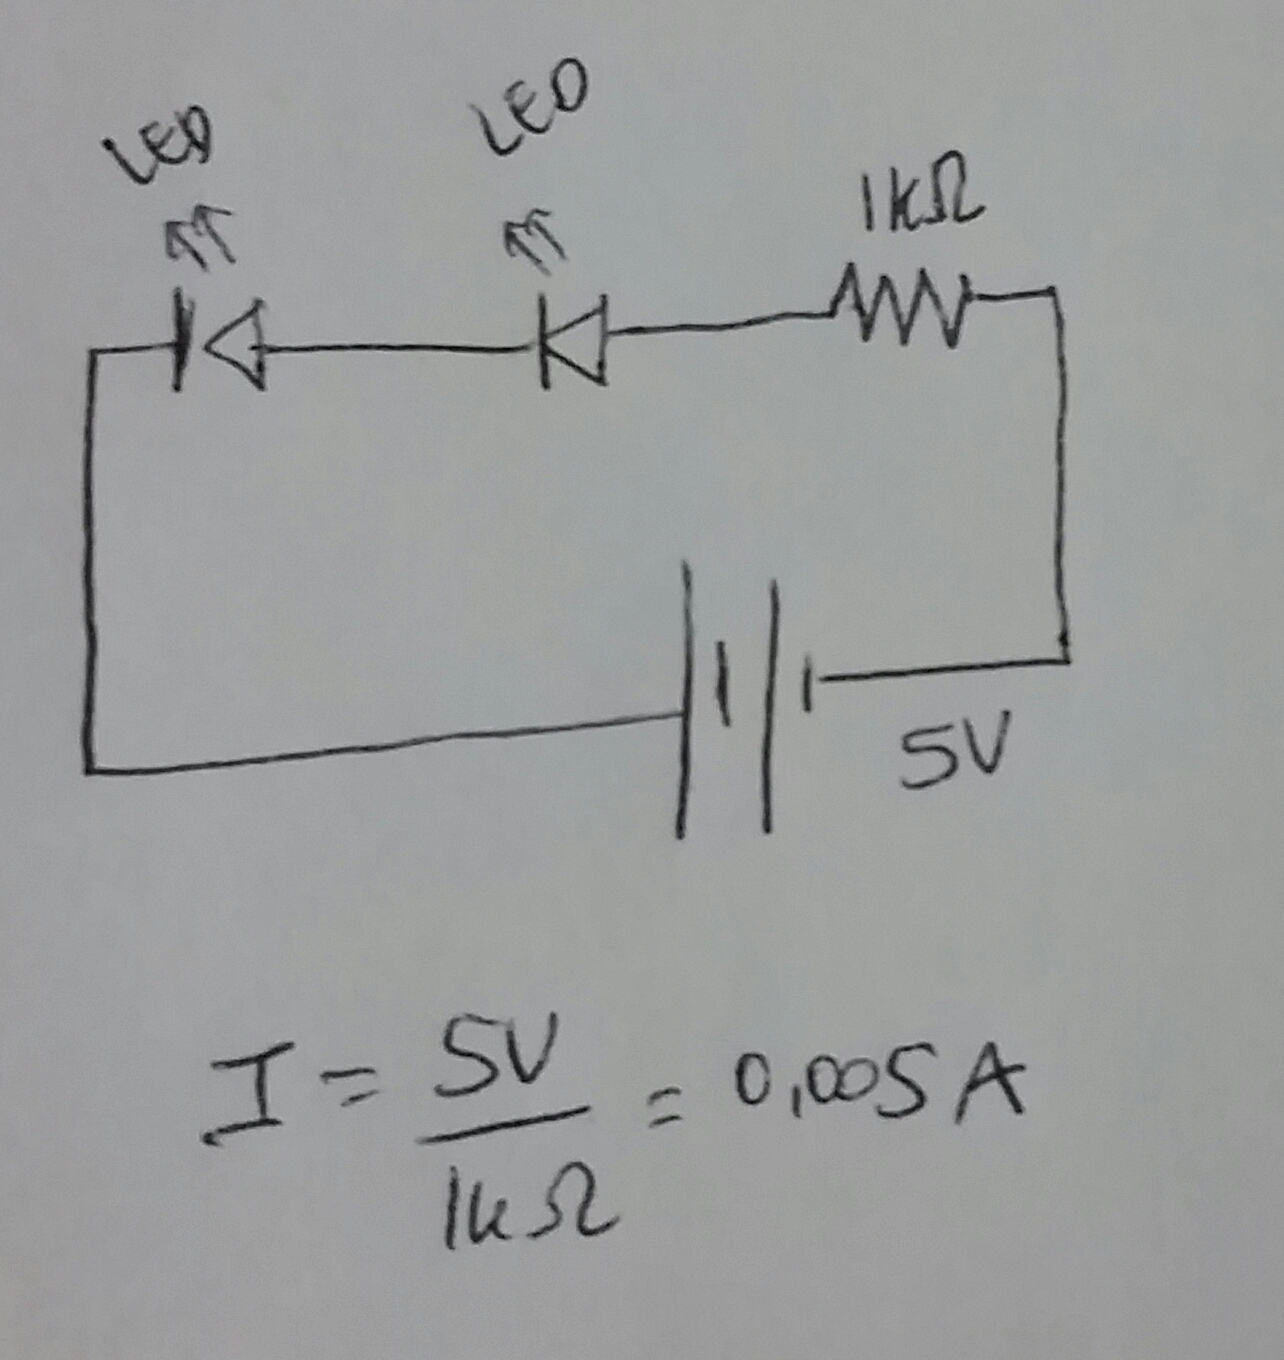 LED
LED
1kΩ
5V
I = 5V / 1kΩ = 0,005 A